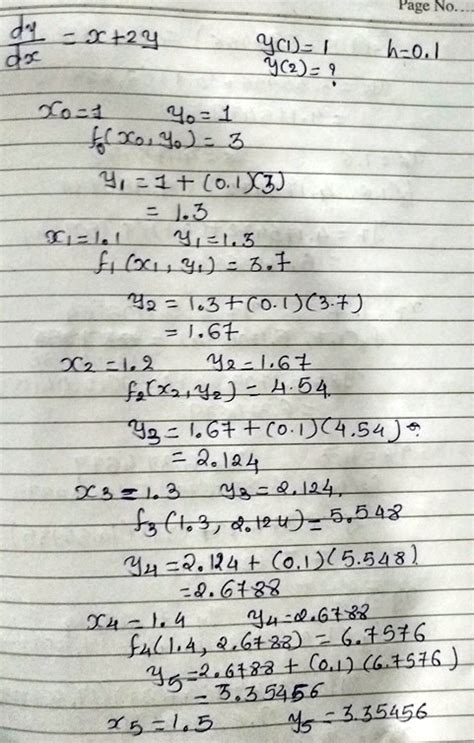 Page No...
dy/dx = x+2y y(1)=1 h=0.1
y(2)=?
x0=1 y0=1
f0(x0, y0) = 3
y1 = 1 + (0.1)(3)
= 1.3
x1=1.1 y1=1.3
f1(x1, y1) = 3.7
y2 = 1.3+(0.1)(3.7)
= 1.67
x2=1.2 y2=1.67
f2(x2, y2) = 4.54
y3 = 1.67+(0.1)(4.54)
= 2.124
x3=1.3 y3=2.124
f3(1.3, 2.124)=5.548
y4=2.124+(0.1)(5.548)
=2.6788
x4=1.4 y4=2.6788
f4(1.4, 2.6788) = 6.7576
y5=2.6788+(0.1)(6.7576)
=3.35456
x5=1.5 y5=3.35456